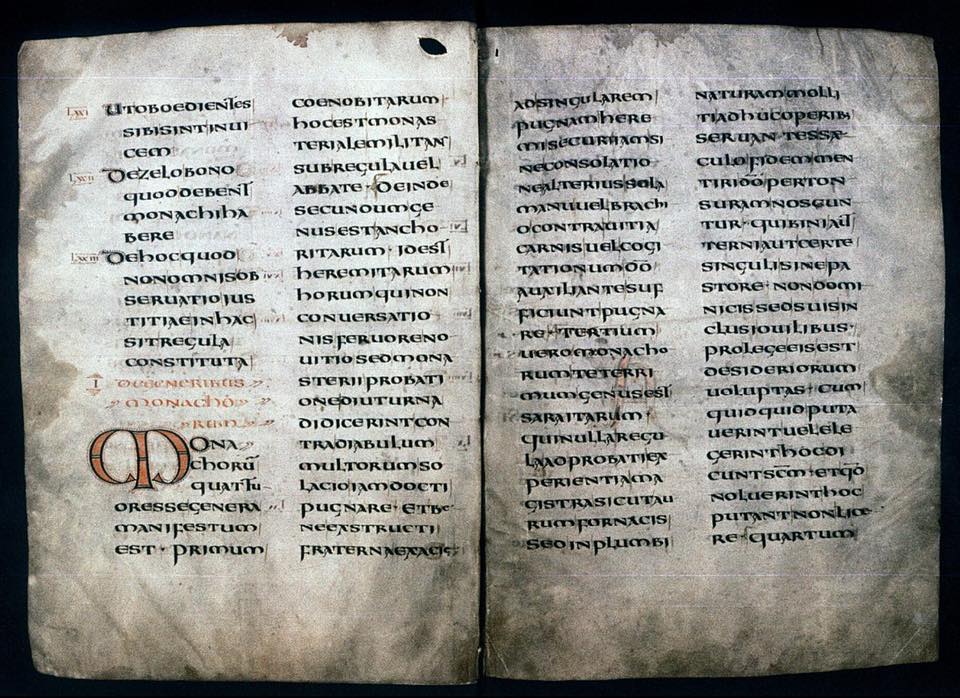 LXXI UTOBOEDIENTES
SIBISINTINUI
CEM
LXXII DEZELOBONO
QUODDEBENT
MONACHIHA
BERE
LXXIII DEHOCQUOD
NONOMNISOB
SERUATIOIUS
TITIAEINHAC
SITREGULA
CONSTITUTA
I DEGENERIBUS
MONACHO
RUM
MONA
CHORŪ
QUATTU
ORESSEGENERA
MANIFESTUM
EST · PRIMUM
COENOBITARUM
HOCESTMONAS
TERIALEMILITAN
SUBREGULAUEL
ABBATE · DEINDE
SECUNDUMGE
NUSESTANCHO
RITARUM · IDEST
HEREMITARUM
HORUMQUINON
CONUERSATIO
NISFERUORENO
UITIOSEDMONA
STERIIPROBATI
ONEDIUTURNA
DIDICERINTCON
TRADIABULUM
MULTORUMSO
LACIOIAMDOCTI
PUGNARE · ETBE
NEEXSTRUCTI
FRATERNAEXACIE
ADSINGULAREM
PUGNAMHERE
MISECURIIAMSI
NECONSOLATIO
NEALTERIUSSOLA
MANUUELBRACHI
OCONTRAUITIA
CARNISUELCOGI
TATIONUMD̄Ō
AUXILIANTESUF
FICIUNTPUGNA
RE · TERTIUM
UEROMONACHO
RUMTETERRI
MUMGENUSEST
SARAITARUM ·
QUINULLAREGU
LAADPROBATIEX
PERIENTIAMA
GISTRASICUTAU
RUMFORNACIS
SEDINPLUMBI
NATURAMMOLLI
TIADHUCOPERIB;
SERUANTESSAE
CULOFIDEMMEN
TIRID̄ŌPERTON
SURAMNOSCUN
TUR · QUIBINIAUT
TERNIAUTCERTE
SINGULISINEPA
STORE · NONDOMI
NICISSEDSUISIN
CLUSIOUILIBUS ·
PROLEGEEISEST
DESIDERIORUM
UOLUPTAS · CUM
QUIDQUIDPUTA
UERINTUELELE
GERINTHOCDI
CUNTSC̄M · ETQŌD
NOLUERINTHOC
PUTANTNONLICE
RE · QUARTUM